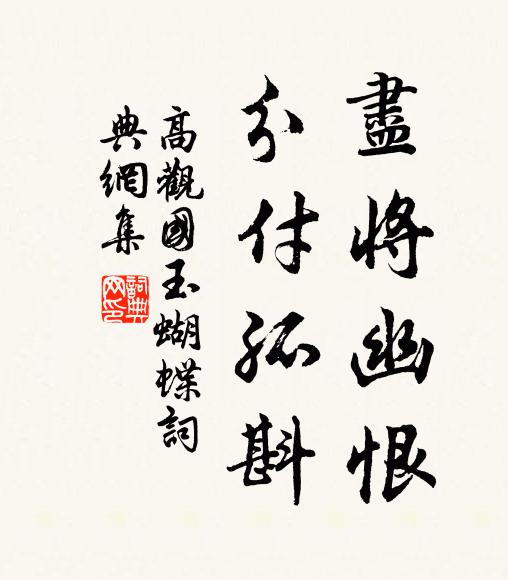 盡將幽恨
分付孤斟
高觀國玉蝴蝶詞
典網集
詞典網印